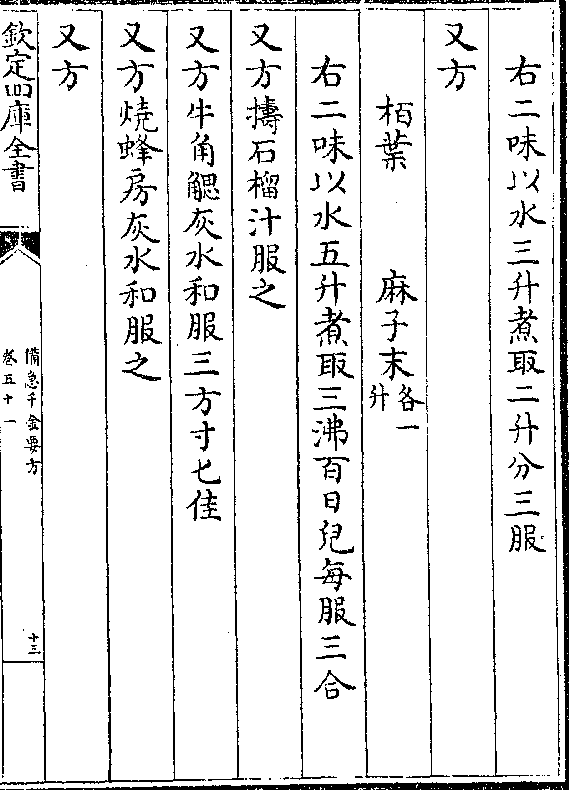 右二味以水三升煮取二升分三服
又方
栢葉　麻子末各一升
右二味以水五升煮取三沸百日兒每服三合
又方擣石榴汁服之
又方牛角䚡灰水和服三方寸匕佳
又方燒蜂房灰水和服之
又方
欽定四庫全書
備急千金要方
卷五十一
十三